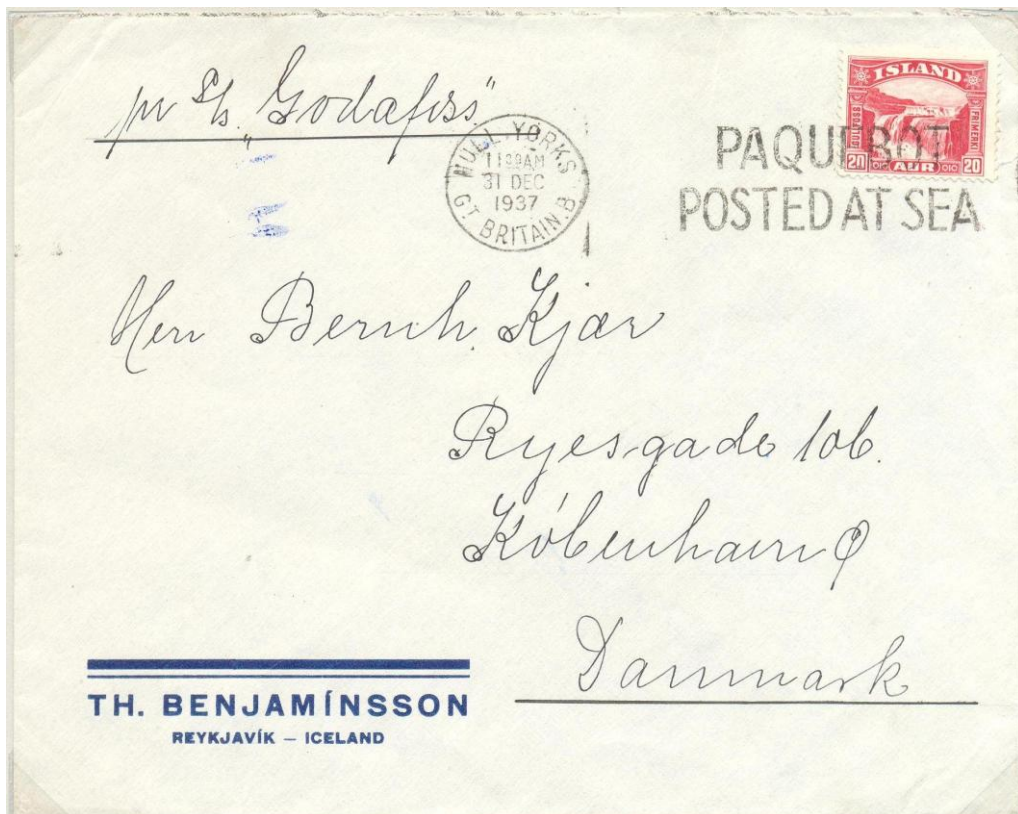 pr S/s. „Godafoss"
HULL. YORKS
11 30 AM
31 DEC
1937
GT BRITAIN. B
PAQUEBOT
POSTED AT SEA
ISLAND
GULLFOSS
FRIMERKI
20 AUR 20
Herr Bernh. Kjær
Ryesgade 106.
København Ø
Danmark
TH. BENJAMÍNSSON
REYKJAVÍK – ICELAND